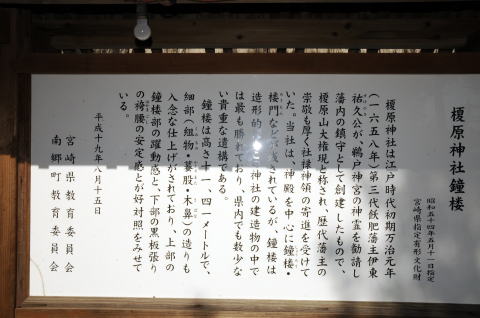 榎原神社鐘楼
昭和五十四年五月十一日指定
宮崎県指定有形文化財
榎原神社は江戸時代初期万治元年
(一六五八年)第三代飫肥藩主伊東
祐久公が鵜戸神宮の神霊を勧請し
藩内の鎮守として創建したもので、
榎原山大権現と称され、歴代藩主の
崇敬も厚く社禄神領の寄進を受けて
いた。当社は、神殿を中心に鐘楼・
楼門などが残されているが、鐘楼は
造形的に神社の建造物の中で
は最も勝れており、県内でも数少な
い貴重な遺構である。
鐘楼は高さ十一・四一メートルで、
細部(組物・蟇股・木鼻)の造りも
入念な仕上げがされており、上部の
鐘楼部の躍動感と、下部の黒板張り
の袴腰の安定感とが好対照をみせて
いる。
平成十九年八月十五日
宮崎県教育委員会
南郷町教育委員会